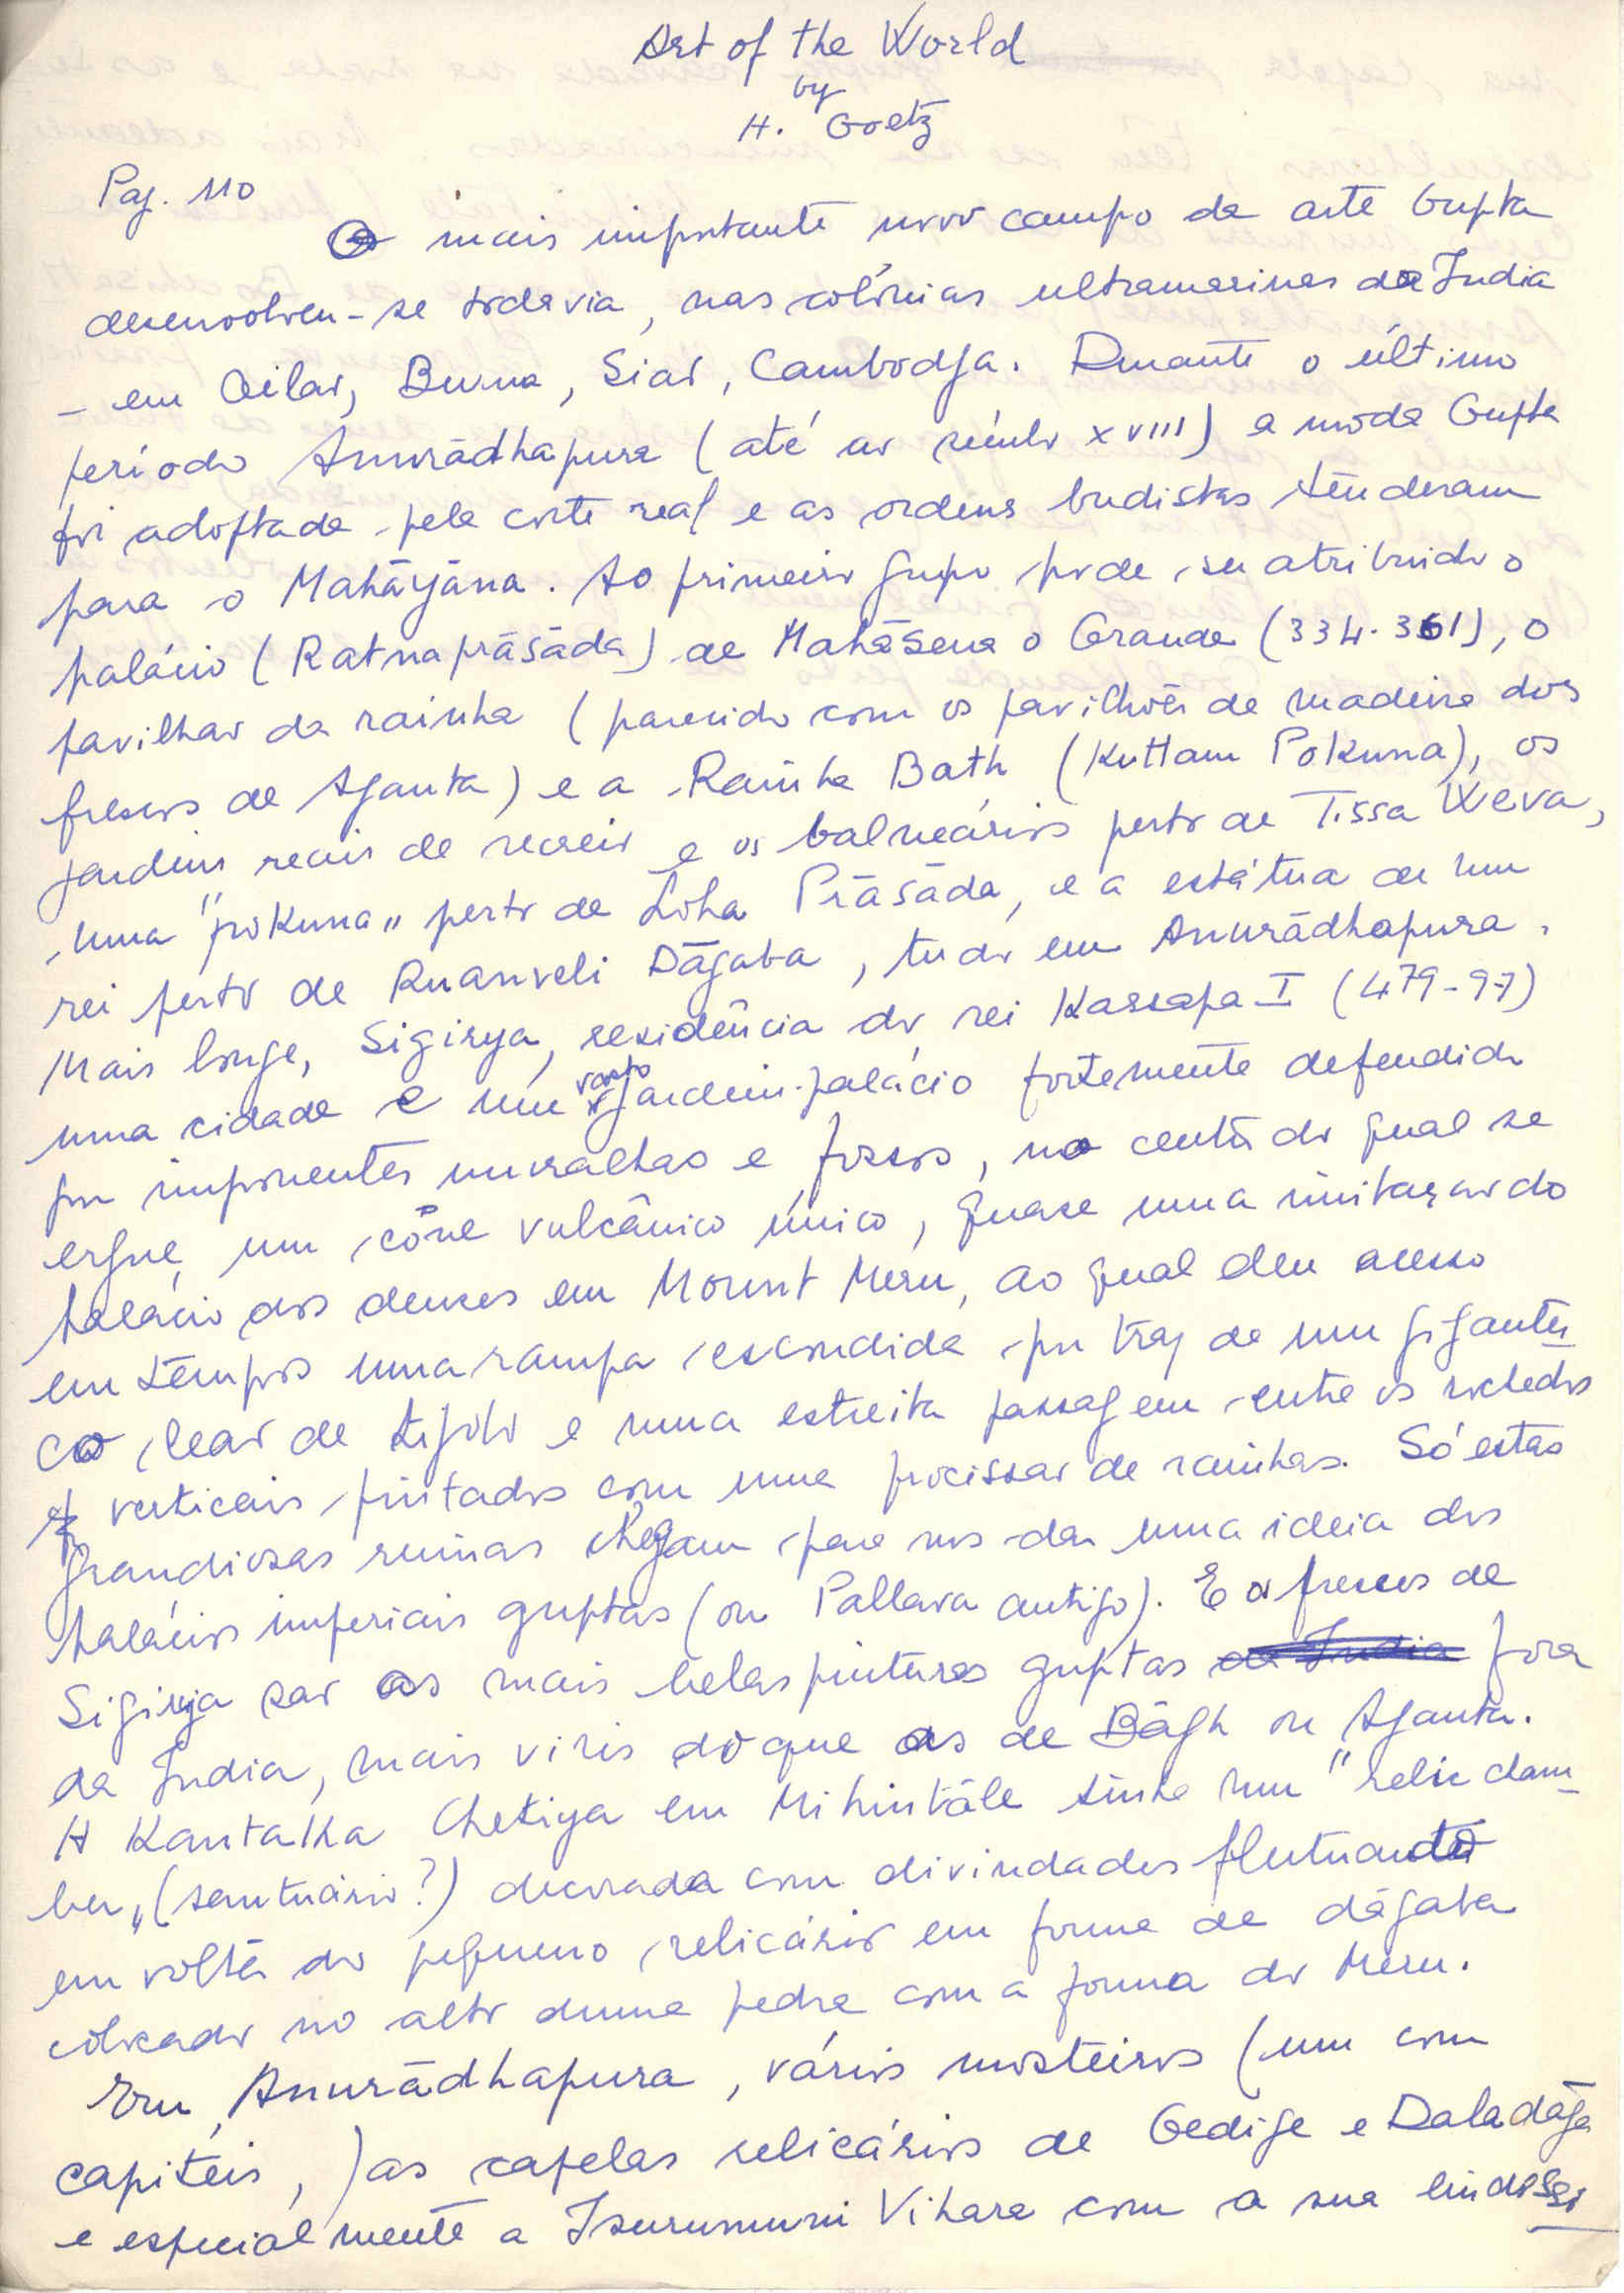 Art of the World
by
H. Goetz
Pag. 110
O mais importante novo campo da arte Gupta
desenvolveu-se todavia, nas colónias ultramarinas da India
- em Ceilão, Burma, Sião, Cambodja. Durante o último
período Anurādhapura (até ao século XVIII) a moda Gupta
foi adoptada pela corte real e as ordens budistas tenderam
para o Mahāyāna. Ao primeiro grupo pode ser atribuido o
palácio (Ratnaprāsāda) de Mahāsena o Grande (334-361), o
pavilhão da rainha (parecido com os pavilhões de madeira dos
frescos de Ajanta) e a Rainha Bath (Kuttam Pokuna), os
jardins reais de recreio e os balneários perto de Tissa Weva,
uma "pokuna" perto de Loha Prāsāda, e a estátua de um
rei perto de Ruanveli Dāgaba, tudo em Anurādhapura.
Mais longe, Sigirya, residência do rei Kassapa I (479-97)
uma cidade e um vasto jardim-palácio fortemente defendido
por imponentes muralhas e fossos, no centro do qual se
ergue um cône vulcânico único, quase uma imitação do
palácio dos deuses em Mount Meru, ao qual deu acesso
em tempos uma rampa escondida por traz de um gigantes
co leão de tijolo e uma estreita passagem entre os rochedos
verticais pintados com uma procissão de rainhas. Só estas
grandiosas ruinas chegam para nos dar uma ideia dos
palácios imperiais guptas (ou Pallava antigo). E os frescos de
Sigirya são as mais belas pinturas guptas da India fora
da India, mais viris do que as de Bāgh ou Ajanta.
A Kantaka Chetiya em Mihintāle tinha um "relic cham-
ber" (santuário?) decorada com divindades flutuando
em volta do pequeno relicário em forma de dāgaba
colocado no alto duma pedra com a forma do Meru.
Em Anurādhapura, vários mosteiros (um com
capiteis,) as capelas relicários de Gedige e Daladāge
e especialmente a Isurumuni Vihara com a sua lindissi